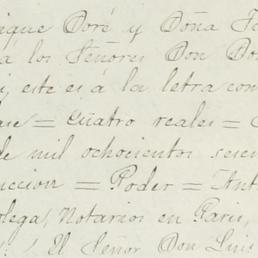 ique Doré y Doña Te
á los Señores Don Do
i, este es á la letra com
ase = Cuatro reales =
de mil ochocientos sesen
uccion = Poder = Ant
olega, Notarios en Paris,
El Señor Don Luis